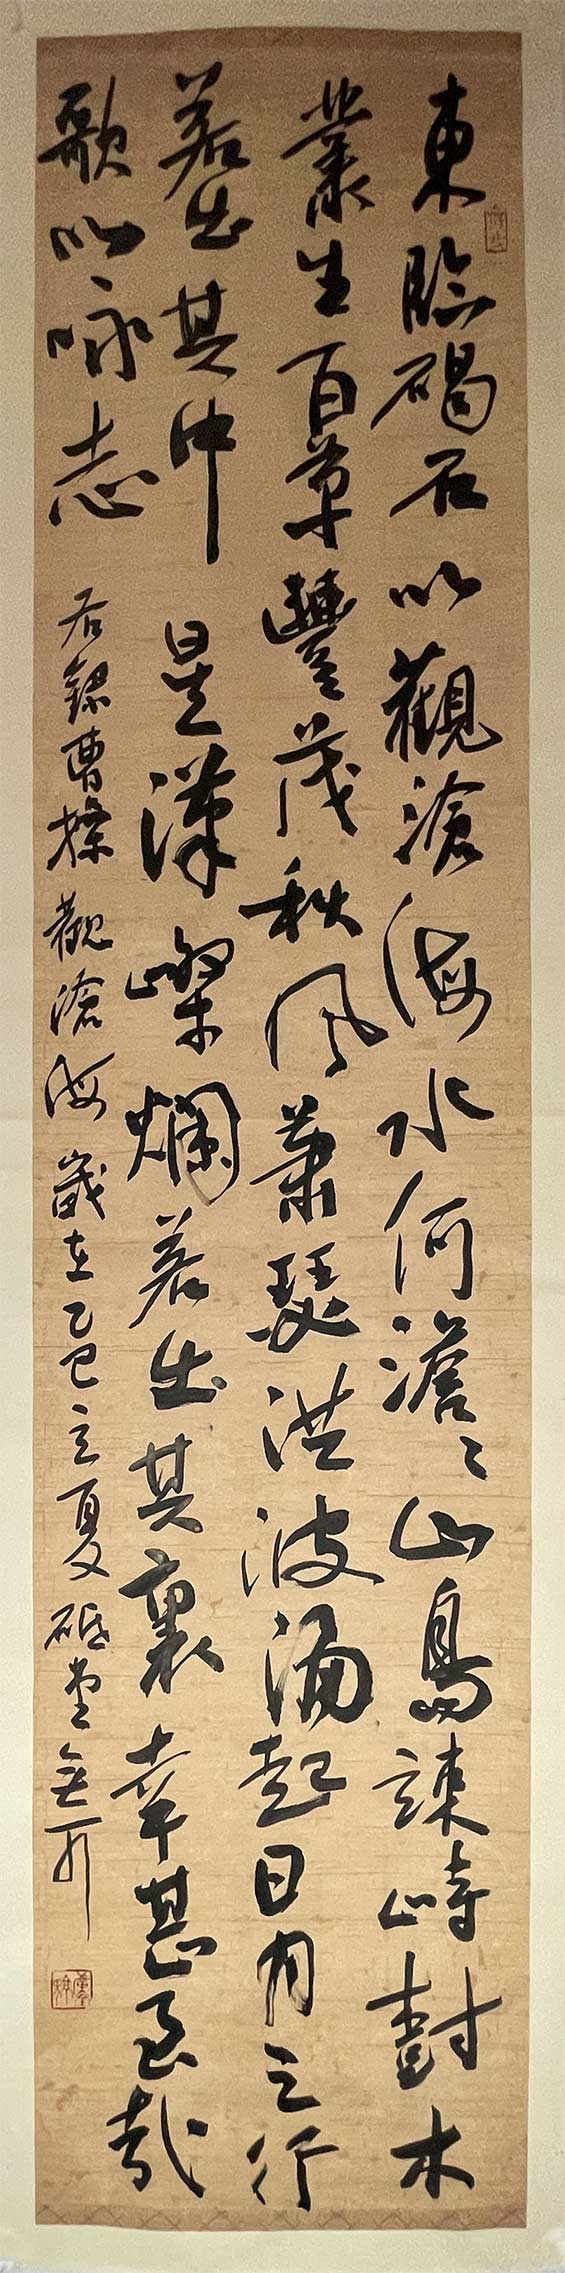 東臨碣石以觀滄海水何澹〻山島竦峙樹木
叢生百草豐茂秋風蕭瑟洪波涌起日月之行
若出其中星漢燦爛若出其裏幸甚至哉
歌以咏志 右錄曹操觀滄海 歲在乙巳立夏 砥堂